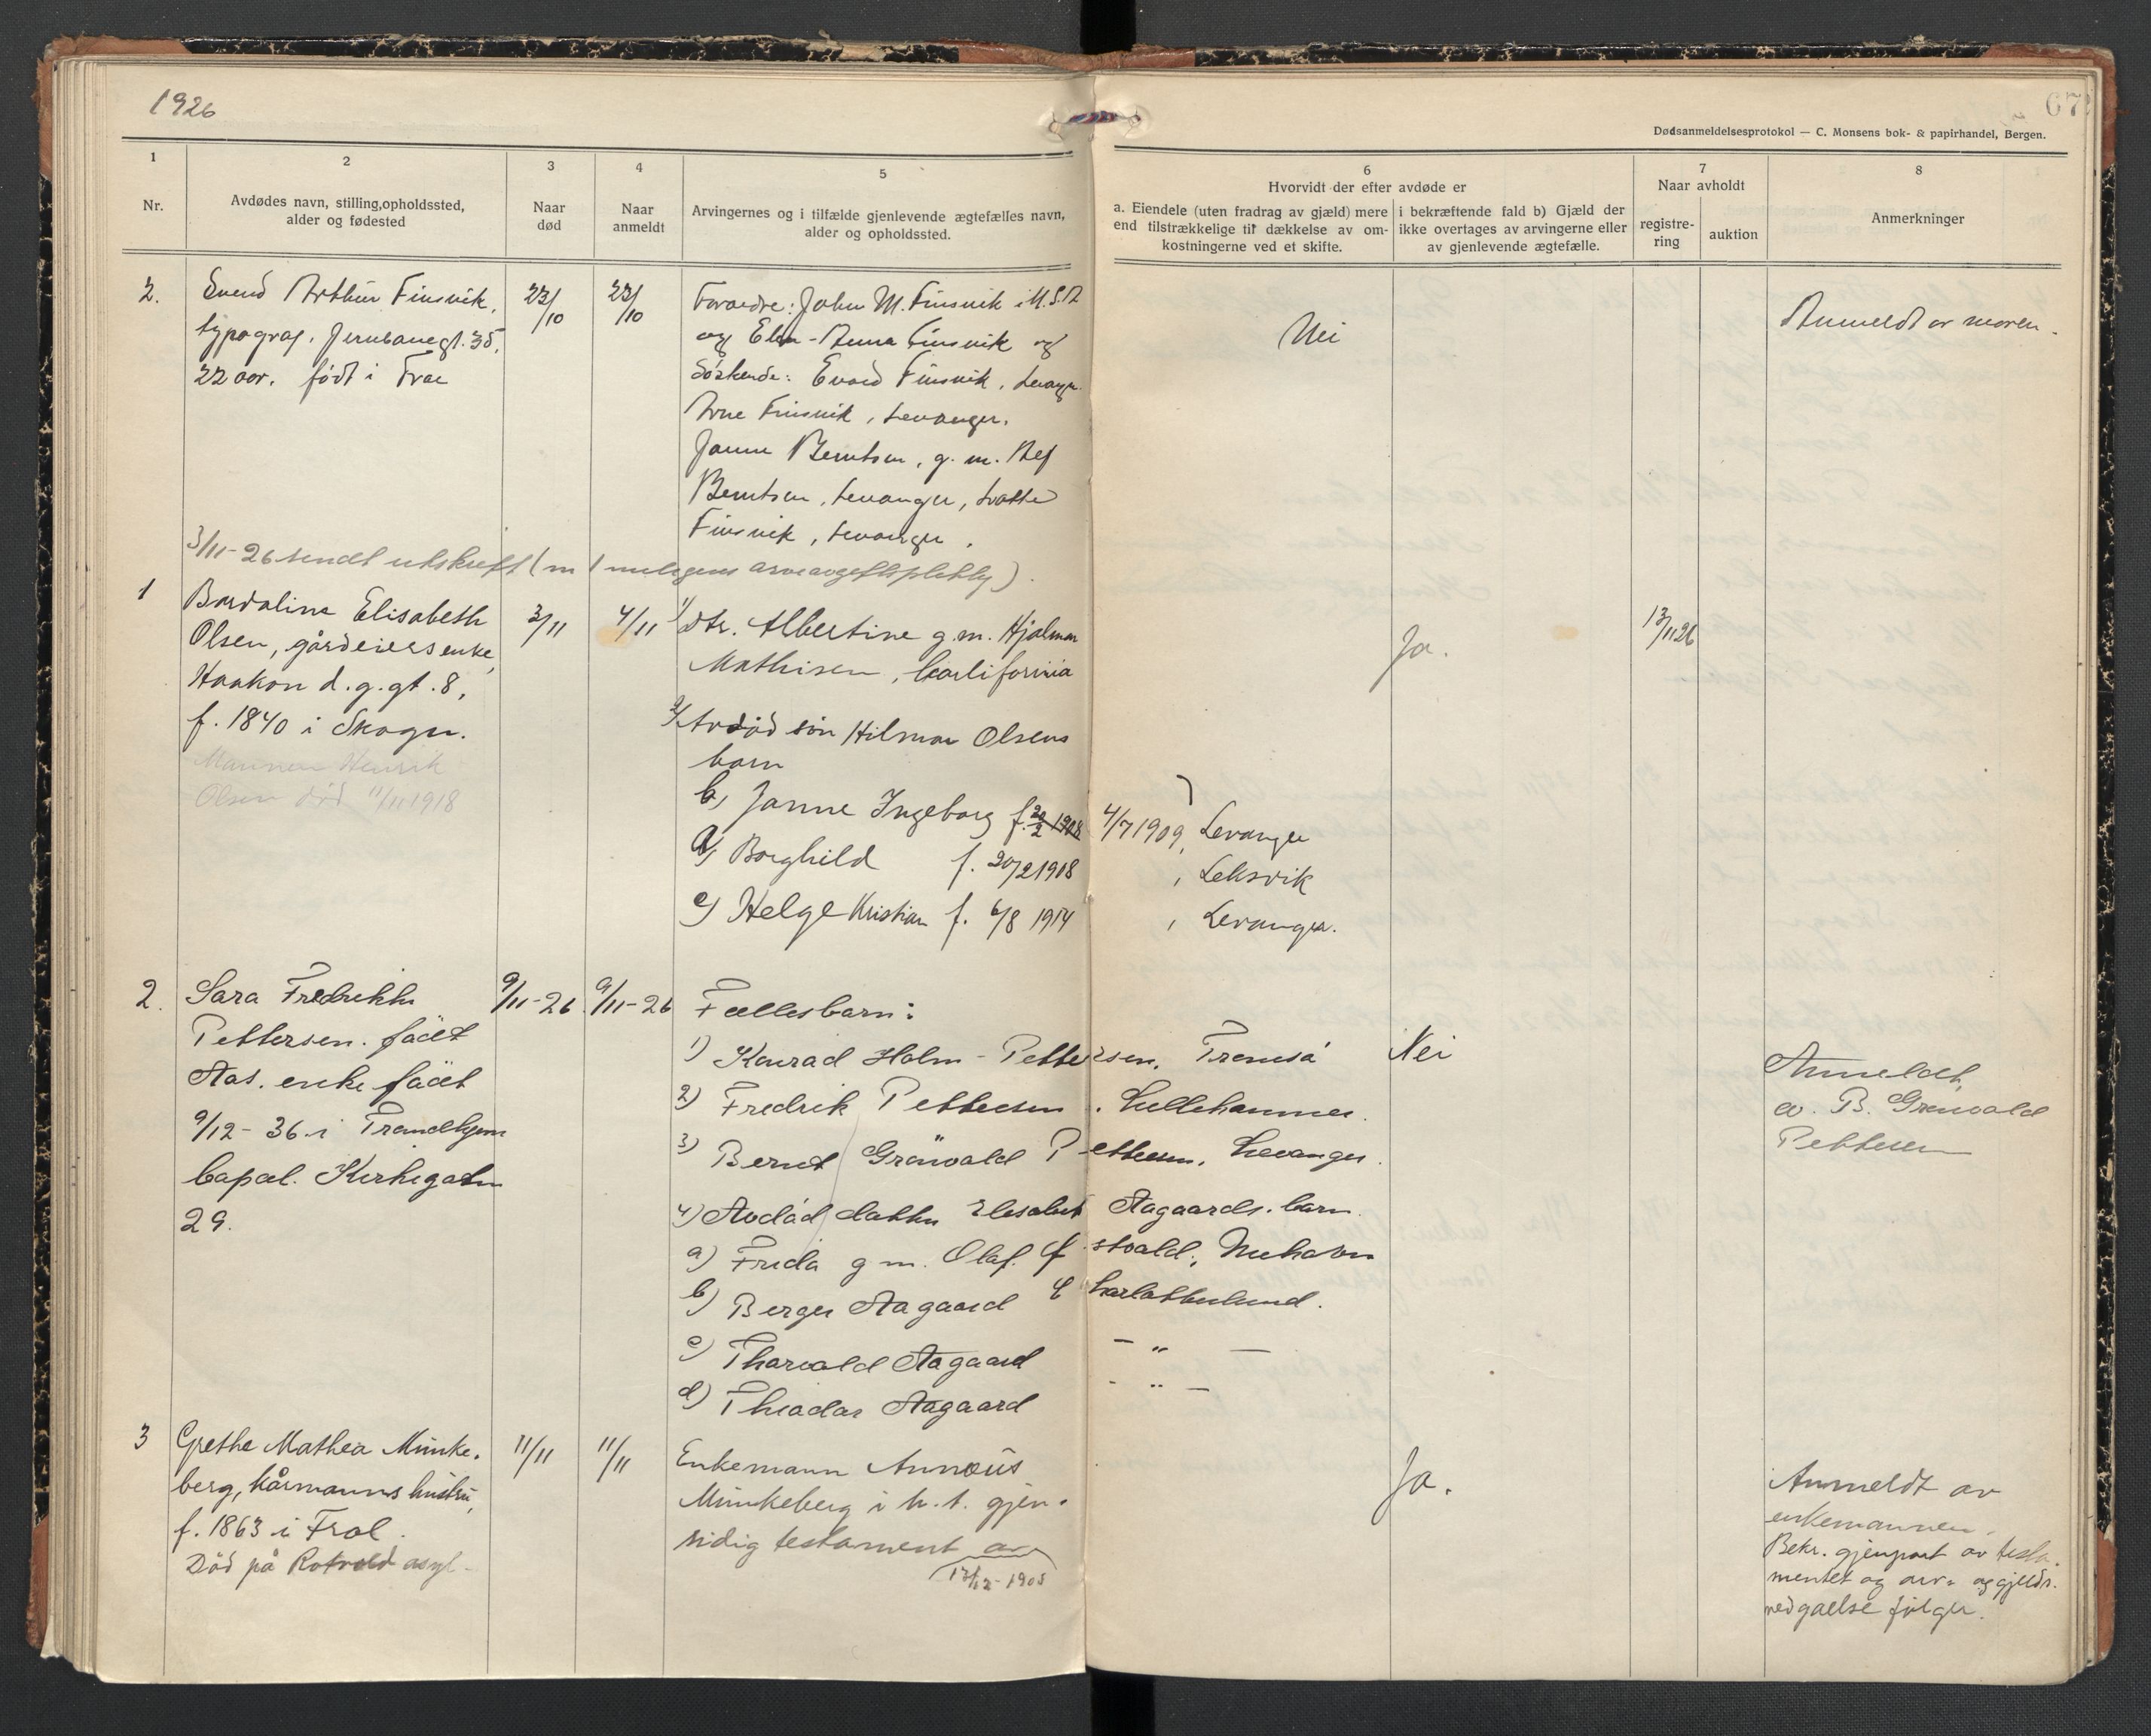 1926
67
Dødsanmeldelsesprotokol — C. Monsens bok- & papirhandel, Bergen.
1
Nr.
2
Avdødes navn, stilling, opholdssted,
alder og fødested
3
Naar
død
4
Naar
anmeldt
5
Arvingernes og i tilfælde gjenlevende ægtefælles navn,
alder og opholdssted.
6
Hvorvidt der efter avdøde er
a. Eiendele (uten fradrag av gjæld) mere
end tilstrækkelige til dækkelse av om-
kostningerne ved et skifte.
i bekræftende fald b) Gjæld der
ikke overtages av arvingerne eller
av gjenlevende ægtefælle.
7
Naar avholdt
registre-
ring
auktion
8
Anmerkninger
2.
Svend Arthur Finsvik,
typograf. Jernbanegt. 35,
22 aar. født i
23/10
23/10
Foraedre: John M. Finsvik i U.S.A
og - Anna Finsvik og
Søskende: Finsvik, Levanger.
Arne Finsvik, Levanger.
Janna Berntsen, g. m.
Berntsen, Levanger,
Finsvik, Levanger.
Nei
Anmeldt av moren.
3/11-26 sendt utskrift (m
1
Bardoline Elisabeth
Olsen, gårdeiersenke,
Haakon d. g. gt. 8,
f. 1840 i Skogn.
Mannen Henrik
Olsen død 11/11 1918
3/11
4/11
1/ dtr. Albertine g. m. Hjalmar
Mathisen, Carlifornia
2/ Avdød søn Hilmar Olsens
barn
b, Janne Ingeborg f. 20/2 1908 4/7 1909, Levanger
a/ Borghild f. 20/2 1908, Leksvik
c/ Helge Kristian f. 6/8 1914, Levanger.
Ja.
13/11 26
2.
Sara Fredrikke
Pettersen. født
Aas. enke født
9/12-36 i Trondhjem
bopæl. Kirkegaten
29.
9/11-26
9/11-26
Fællesbarn:
1) Konrad Holm-Pettersen, Tromsø
2) Fredrik Pettersen. Lillehammer.
3) Bernt Grønvald Pettersen, Levanger.
4) Avdød datter Elisabet Aagaards. barn.
a) Frida g m. Olaf
b) Berger Aagaard Charlottenlund.
c) Thorvald Aagaard — „ —
d) Theodor Aagaard - „ —
Nei
Anmeldt,
av. B. Grønvald
Pettersen
3
Grethe Mathea Munke-
berg, kårmanns hustru,
f. 1863 i Frol.
Død på Rotvold asyl.
11/11
11/11
Enkemann
Munkeberg i h. t. gjen-
sidig testament av
13/12-1905
Ja.
Anmeldt av
enkemannen.
Bekr. gjenpart av testa-
mentet og arv- og gjelds-
vedgaelse følger.